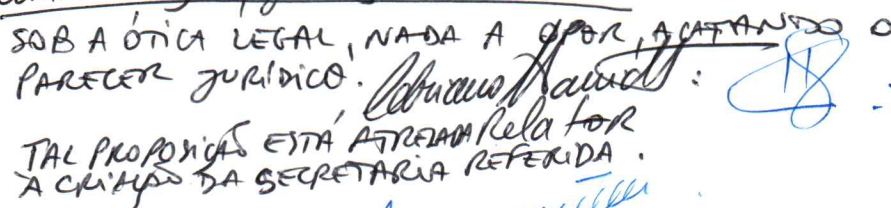 SOB A ÓTICA LEGAL, NADA A OPOR, ACATANDO O
PARECER JURÍDICO. Adriano :
Relator
TAL PROPOSIÇÃO ESTÁ ATRELADA
À CRIAÇÃO DA SECRETARIA REFERIDA.